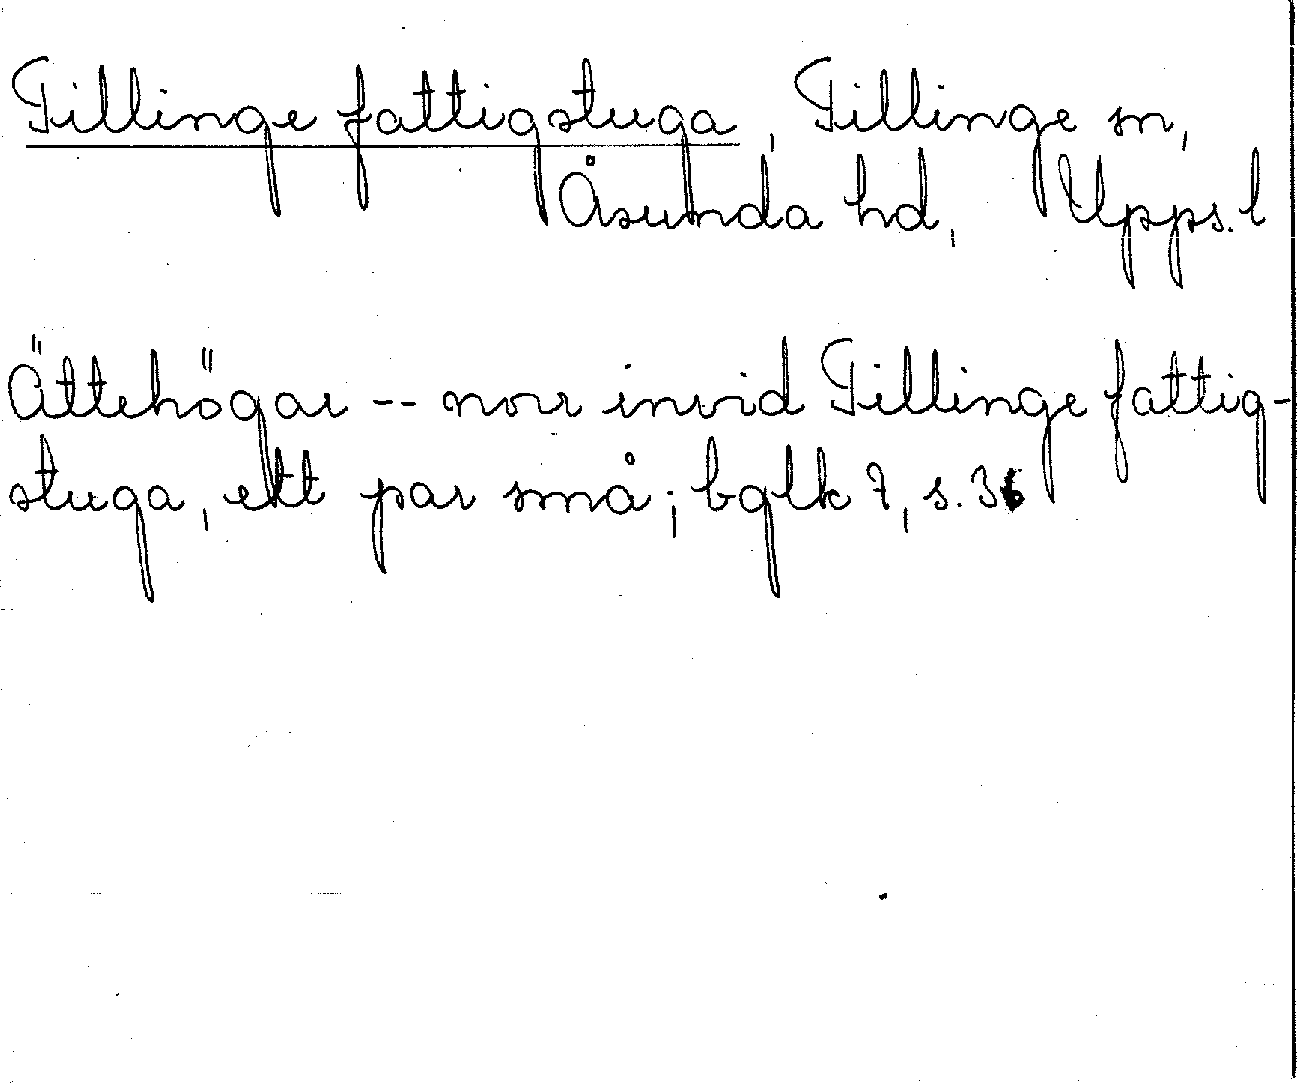 Tillinge fattigstuga, Tillinge sn,
Åsunda hd, Upps. l
Ättehögar -- norr invid Tillinge fattig-
stuga, ett par små; bglk 7, s. 36